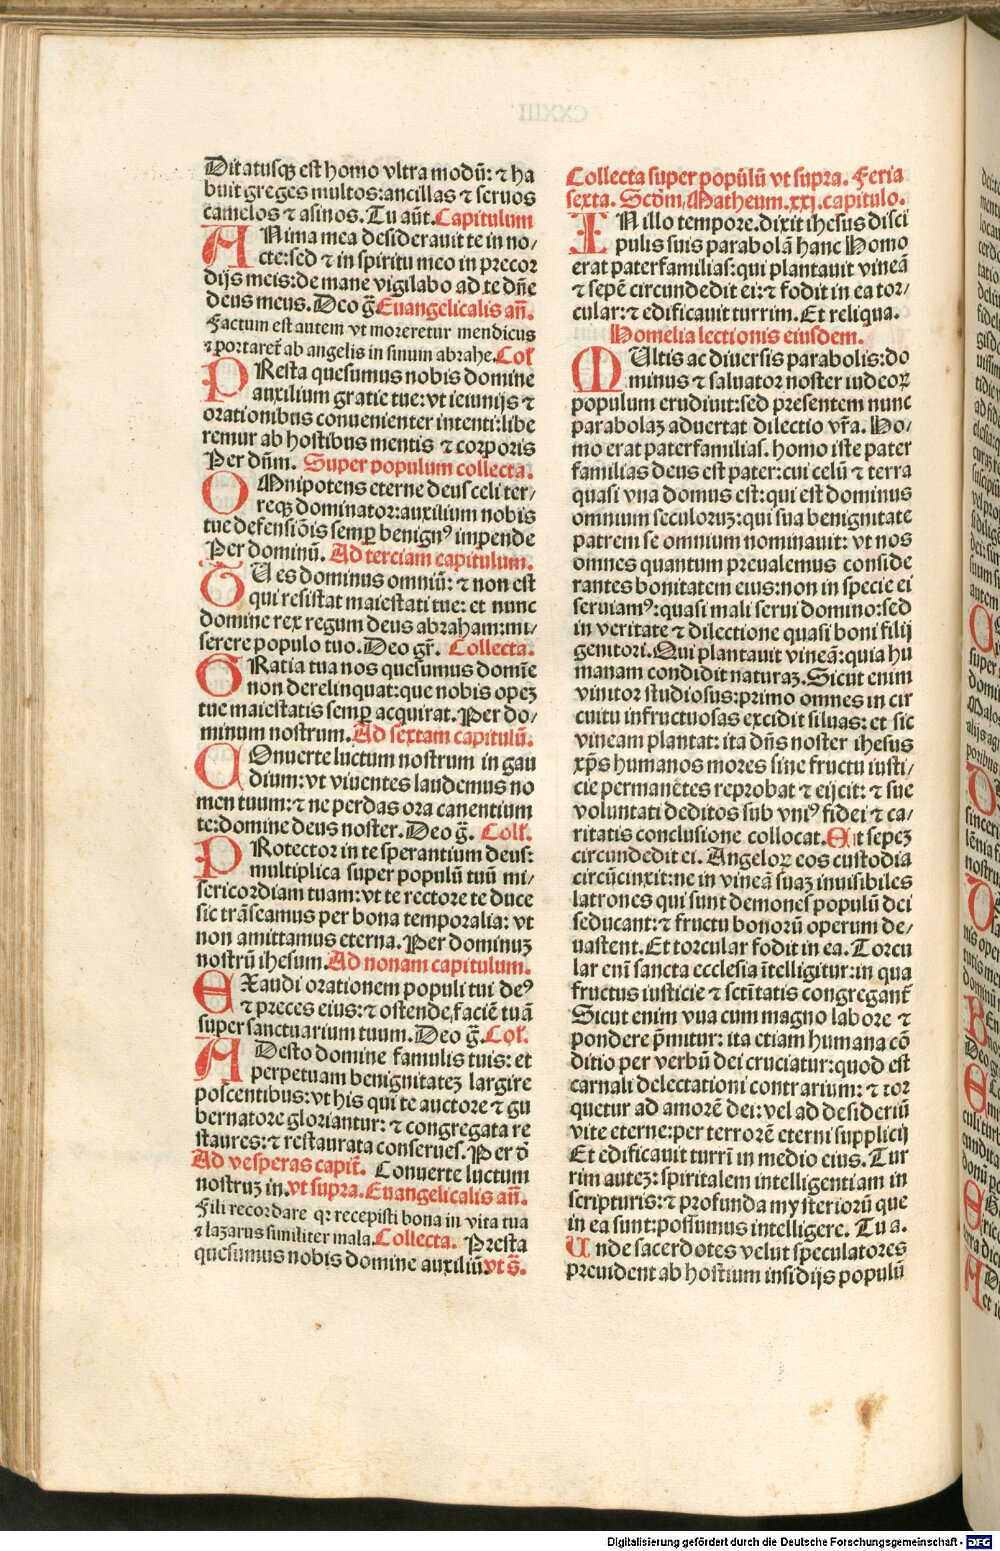 Ditatusqꝫ est homo vltra modū: ⁊ ha
buit greges multos: ancillas ⁊ seruos
camelos ⁊ asinos. Tu aūt. Capitulum
ANima mea desiderauit te in no/
cte: sed ⁊ in spiritu meo in precor
dijs meis: de mane vigilabo ad te dn̄e
deus meus. Deo g̃ Euangelicalis añ.
Factum est autem vt moreretur mendicus
⁊ portaret᷑ ab angelis in sinum abrahe. Col̃
PResta quesumus nobis domine
auxilium gratie tue: vt ieiunijs ⁊
orationibus conuenienter intenti: libe
remur ab hostibus mentis ⁊ corporis
Per dn̄m. Super populum collecta.
OMnipotens eterne deus celi ter/
reqꝫ dominator: auxilium nobis
tue defensiōis semꝑ benignꝰ impende
Per dominū. Ad terciam capitulum.
TU es dominus omniū: ⁊ non est
qui resistat maiestati tue: et nunc
domine rex regum deus abraham: mi/
serere populo tuo. Deo gr̃. Collecta.
GRatia tua nos quesumus domīe
non derelinquat: que nobis opeꝫ
tue maiestatis semꝑ acquirat. Per do/
minum nostrum. Ad sextam capitulū.
COnuerte luctum nostrum in gau
dium: vt viuentes laudemus no
men tuum: ⁊ ne perdas ora canentium
te: domine deus noster. Deo g̃. Coll̃.
PRotector in te sperantium deus:
multiplica super populū tuū mi/
sericordiam tuam: vt te rectore te duce
sic trāseamus per bona temporalia: vt
non amittamus eterna. Per dominuꝫ
nostrū ihesum. Ad nonam capitulum.
EXaudi orationem populi tui deꝰ
⁊ preces eius: ⁊ ostende faciē tuā
super sanctuarium tuum. Deo g̃. Col̃.
ADesto domine famulis tuis: et
perpetuam benignitateꝫ largire
poscentibus: vt his qui te auctore ⁊ gu
bernatore gloriantur: ⁊ congregata re
staures: ⁊ restaurata conserues. Per d̄
Ad vesperas capit̃. Conuerte luctum
nostruꝫ in. vt supra. Euangelicalis añ.
Fili recordare qꝛ recepisti bona in vita tua
⁊ lazarus similiter mala. Collecta. Presta
quesumus nobis domine auxiliū. vt s̃.
Collecta super populū vt supra. Feria
sexta. Scd̃m Matheum. xxj. capitulo.
IN illo tempore. dixit ihesus disci
pulis suis parabolā hanc Homo
erat paterfamilias: qui plantauit vineā
⁊ sepē circundedit ei: ⁊ fodit in ea tor/
cular: ⁊ edificauit turrim. Et reliqua.
Homelia lectionis eiusdem.
MUltis ac diuersis parabolis: do
minus ⁊ saluator noster iudeoꝝ
populum erudiuit: sed presentem nunc
parabolaꝫ aduertat dilectio vr̄a. Ho/
mo erat paterfamilias. homo iste pater
familias deus est pater: cui celū ⁊ terra
quasi vna domus est: qui est dominus
omnium seculoruꝫ: qui sua benignitate
patrem se omnium nominauit: vt nos
omnes quantum preualemus conside
rantes bonitatem eius: non in specie ei
seruiamꝰ: quasi mali serui domino: sed
in veritate ⁊ dilectione quasi boni filij
genitori. Qui plantauit vineā: quia hu
manam condidit naturaꝫ. Sicut enim
vinitor studiosus: primo omnes in cir
cuitu infructuosas excidit siluas: et sic
vineam plantat: ita dn̄s noster ihesus
xp̄s humanos mores sine fructu iusti/
cie permanētes reprobat ⁊ eijcit: ⁊ sue
voluntati deditos sub vniꝰ fidei ⁊ ca/
ritatis conclusione collocat. Et sepeꝫ
circundedit ei. Angeloꝝ eos custodia
circūcinxit: ne in vineā suaꝫ inuisibiles
latrones qui sunt demones populū dei
seducant: ⁊ fructu bonorū operum de/
uastent. Et torcular fodit in ea. Torcu
lar enī sancta ecclesia ītelligitur: in qua
fructus iusticie ⁊ sct̄itatis congregant᷑
Sicut enim vua cum magno labore ⁊
pondere p̄mitur: ita etiam humana cō
ditio per verbū dei cruciatur: quod est
carnali delectationi contrarium: ⁊ tor
quetur ad amorē dei: vel ad desideriū
vite eterne: per terrorē eterni supplicij
Et edificauit turrī in medio eius. Tur
rim auteꝫ: spiritalem intelligentiam in
scripturis: ⁊ profunda mysteriorū que
in ea sunt: possumus intelligere. Tu a.
Unde sacerdotes velut speculatores
preuident ab hostium insidijs populū
Digitalisierung gefördert durch die Deutsche Forschungsgemeinschaft - DFG